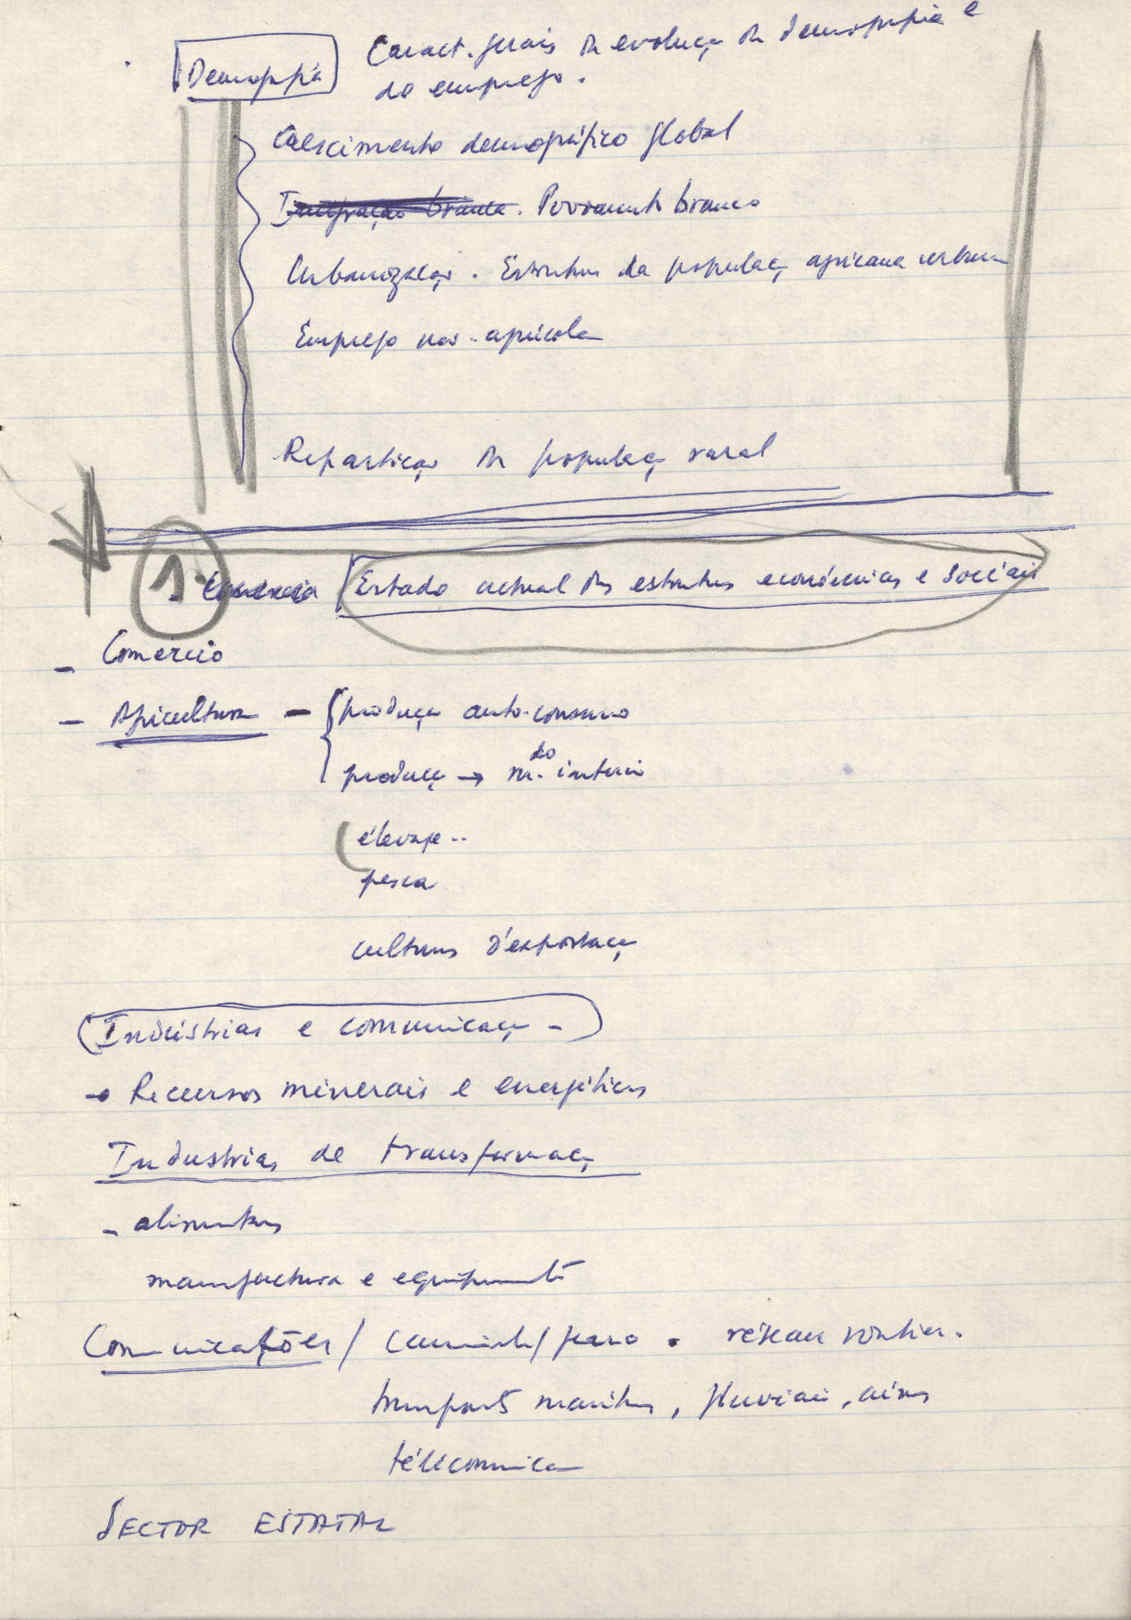 Demografia
Caract. gerais da evolução da demografia e
do emprego.
Crescimento demográfico global
Imigração branca. Povoamento branco
Urbanização. Estrutura da população africana urbana
Emprego não-agrícola
Repartição da população rural
1. Estado actual das estruturas económicas e sociais
- Comércio
- Agricultura - produção auto-consumo
produção → m.do interio
élevage..
pesca
culturas d'exportação
Indústrias e comunicação -
Recursos minerais e energéticos
Industrias de transformação
- alimentares
manufactura e equipamento
Comunicações / caminh/ ferro . réseau routier.
transports maritimes, fluviais, aires
télécomunica
SECTOR ESTATAL